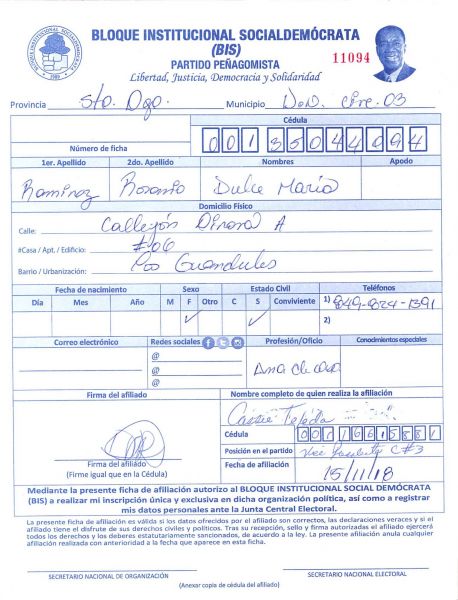 BLOQUE INSTITUCIONAL SOCIALDEMÓCRATA
(BIS)
PARTIDO PEÑAGOMISTA
Libertad, Justicia, Democracia y Solidaridad
11094
BLOQUE INSTITUCIONAL SOCIALDEMOCRATA
Provincia Sto. Dgo. Municipio D.N. Circ. 03
Cédula
Número de ficha 001 3504409 4
1er. Apellido 2do. Apellido Nombres Apodo
Ramirez Rosario Dulce Maria
Domicilio Físico
Calle: Callejón Dinora A
#Casa / Apt. / Edificio: #06
Barrio / Urbanización: Los Guandules
Fecha de nacimiento Sexo Estado Civil Teléfonos
Día Mes Año M F Otro C S Conviviente 1) 849-824-1391
✓ ✓ 2)
Correo electrónico Redes sociales Profesión/Oficio Conocimientos especiales
@
@ Ama de casa
@
Firma del afiliado Nombre completo de quien realiza la afiliación
Cassie Tejeda
Cédula 001 1661588 1
Posición en el partido Vice Presidente C#3
Firma del afiliado
(Firme igual que en la Cédula)
Fecha de afiliación 15/11/18
Mediante la presente ficha de afiliación autorizo al BLOQUE INSTITUCIONAL SOCIAL DEMÓCRATA
(BIS) a realizar mi inscripción única y exclusiva en dicha organización política, así como a registrar
mis datos personales ante la Junta Central Electoral.
La presente ficha de afiliación es válida si los datos ofrecidos por el afiliado son correctos, las declaraciones veraces y si el
afiliado tiene el disfrute de sus derechos civiles y políticos. Tras su recepción, sello y firma autorizados el afiliado ejercerá
todos los derechos y los deberes estatutariamente sancionados, de acuerdo a la ley. La presente afiliación anula cualquier
afiliación realizada con anterioridad a la fecha que aparece en esta ficha.
SECRETARIO NACIONAL DE ORGANIZACIÓN SECRETARIO NACIONAL ELECTORAL
(Anexar copia de cédula del afiliado)